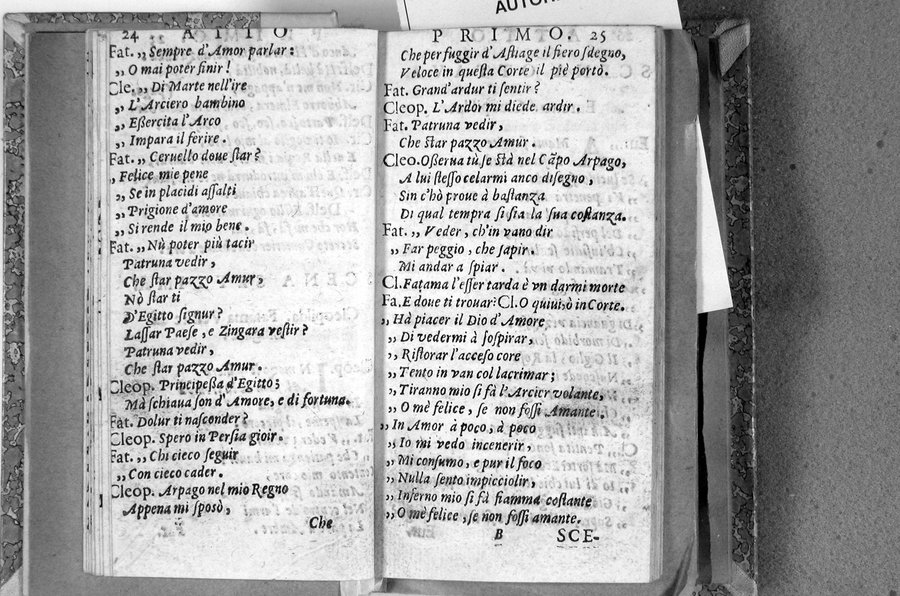 AUTOR
24 ATTO
Fat. ,, Sempre d'Amor parlar:
,, O mai poter finir!
Cle. ,, Di Marte nell'ire
,, L'Arciero bambino
,, Eßercita l'Arco
,, Impara il ferire.
Fat. ,, Ceruello doue ſtar?
,, Felice mie pene
,, Se in placidi aſſalti
,, Prigione d'amore
,, Si rende il mio bene.
Fat. ,, Nù poter più tacir
Patruna vedir,
Che ſtar pazzo Amur,
Nò ſtar ti
D'Egitto ſignur?
Laſſar Paeſe, e Zingara veſtir?
Patruna vedir,
Che ſtar pazzo Amur.
Cleop. Principeßa d'Egitto;
Mà ſchiaua ſon d'Amore, e di fortuna.
Fat. Dolur ti naſconder?
Cleop. Spero in Perſia gioir.
Fat. ,, Chi cieco ſeguir
,, Con cieco cader.
Cleop. Arpago nel mio Regno
Appena mi ſposò,
Che
PRIMO. 25
Che per fuggir d'Aſtiage il fiero ſdegno,
Veloce in queſta Corte il piè portò.
Fat. Grand'ardur ti ſentir?
Cleop. L'Ardor mi diede ardir.
Fat. Patruna vedir,
Che ſtar pazzo Amur.
Cleo. Oßerua tù, ſe Stà nel Cāpo Arpago,
A lui ſteſſo celarmi anco diſegno,
Sin c'hò proue à baſtanza
Di qual tempra ſi ſia la ſua coſtanza.
Fat. ,, Veder, ch'in vano dir
,, Far peggio, che ſapir.
Mi andar a ſpiar.
Cl. Fatama l'eſſer tarda è vn darmi morte
Fa. E doue ti trouar? Cl. O quiui, ò in Corte.
,, Hà piacer il Dio d'Amore
,, Di vedermi à ſoſpirar,
,, Riſtorar l'acceſo core
,, Tento in van col lacrimar;
,, Tiranno mio ſi fà l'Arcier volante,
,, O mè felice, ſe non foſſi Amante.
,, In Amor à poco, à poco
,, Io mi vedo incenerir,
,, Mi conſumo, e pur il foco
,, Nulla ſento impicciolir,
,, Inferno mio ſi fà fiamma coſtante
,, O mè felice, ſe non foſſi amante.
B SCE-